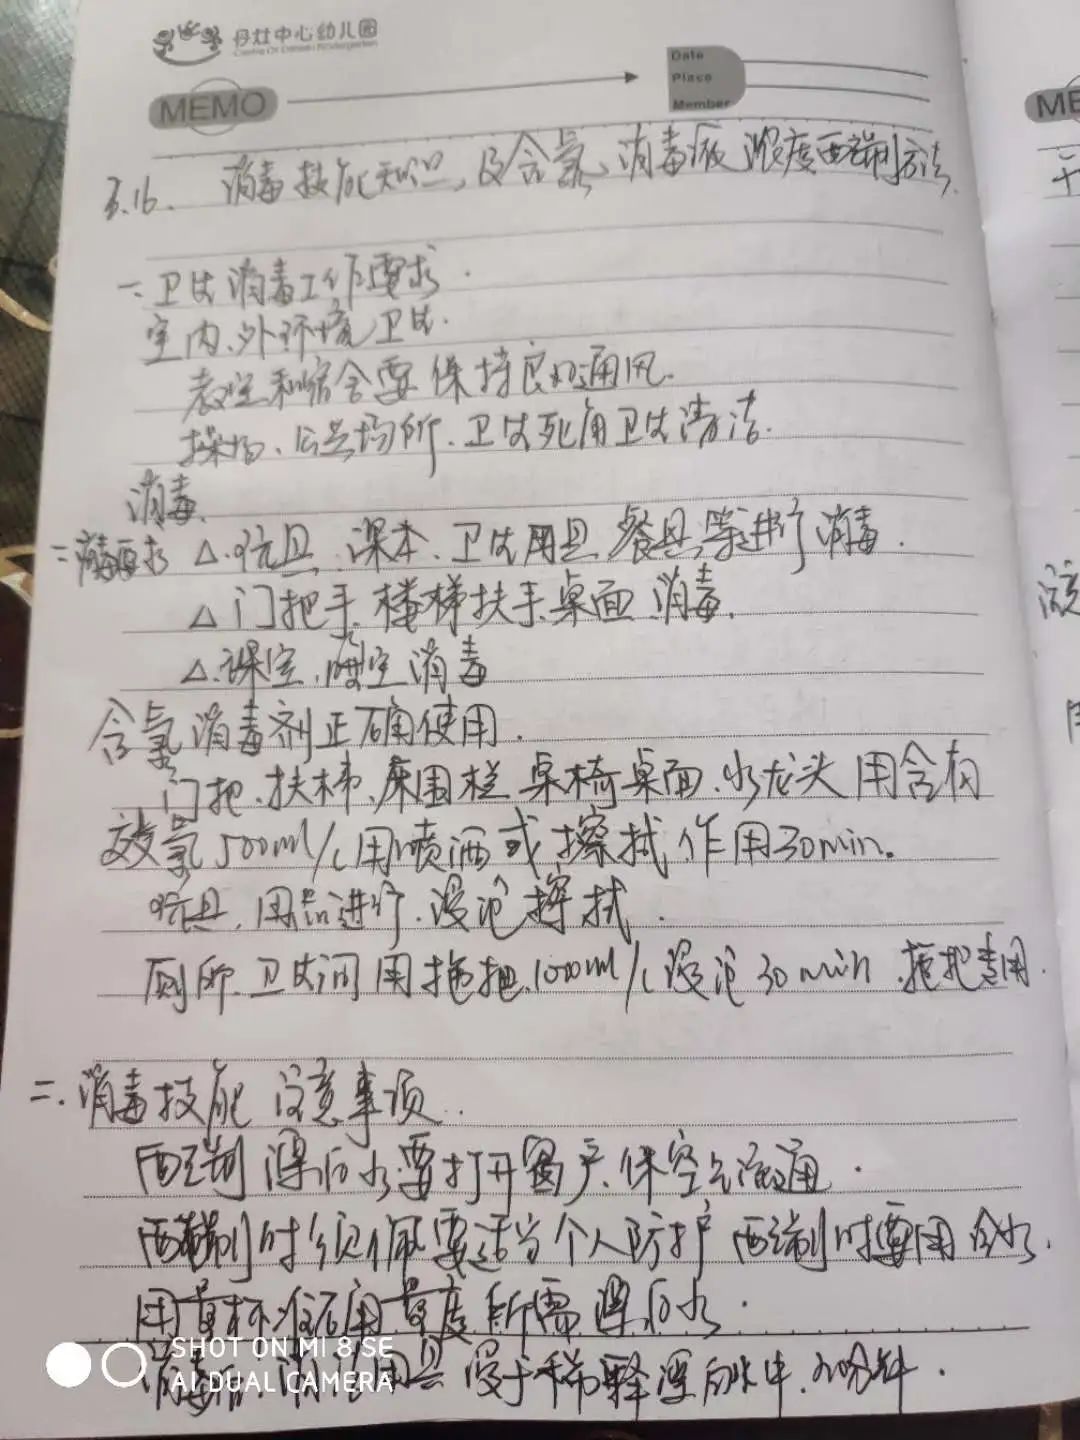 丹灶中心幼儿园
MEMO
Date
Place
Member
ME
3.16. 消毒技能知识,及含氯、消毒液浓度配制方法.
一.卫生消毒工作要求.
室内、外环境卫生.
教室和宿舍要保持良好通风.
操场、公共场所.卫生死角卫生清洁.
消毒.
二消毒要求 △.玩具.课本.卫生用具.餐具等进行消毒.
△门把手.楼梯扶手.桌面.消毒.
△.课室. 室消毒
含氯消毒剂正确使用.
门把、扶梯、床围栏 桌椅桌面、水龙头 用含有
效氯500ml/L用喷洒或擦拭作用30min.
玩具.用品进行.浸泡擦拭.
厕所.卫生间用拖把.1000ml/L浸泡30min.拖把专用.
二.消毒技能注意事项.
配制漂白水要打开窗户.保空气流通.
配制时须佩要适当个人防护 配制时要用冷水.
用量杯准确用量度所需漂白水.
消毒后.清洁用具浸于稀释漂白水中.30分钟.
SHOT ON MI 8 SE
AI DUAL CAMERA